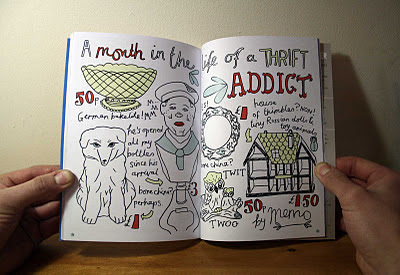 A month in the life of a THRIFT
ADDICT
50p
German bakelite!
MMM
he's opened
all my
bottles
since his
arrival
bone china?
perhaps.
3
house
of thimbles? NOW!
tiny Russian dolls &
toy animals
bone china?
TWIT
TWOO
50p
£150
by Memo